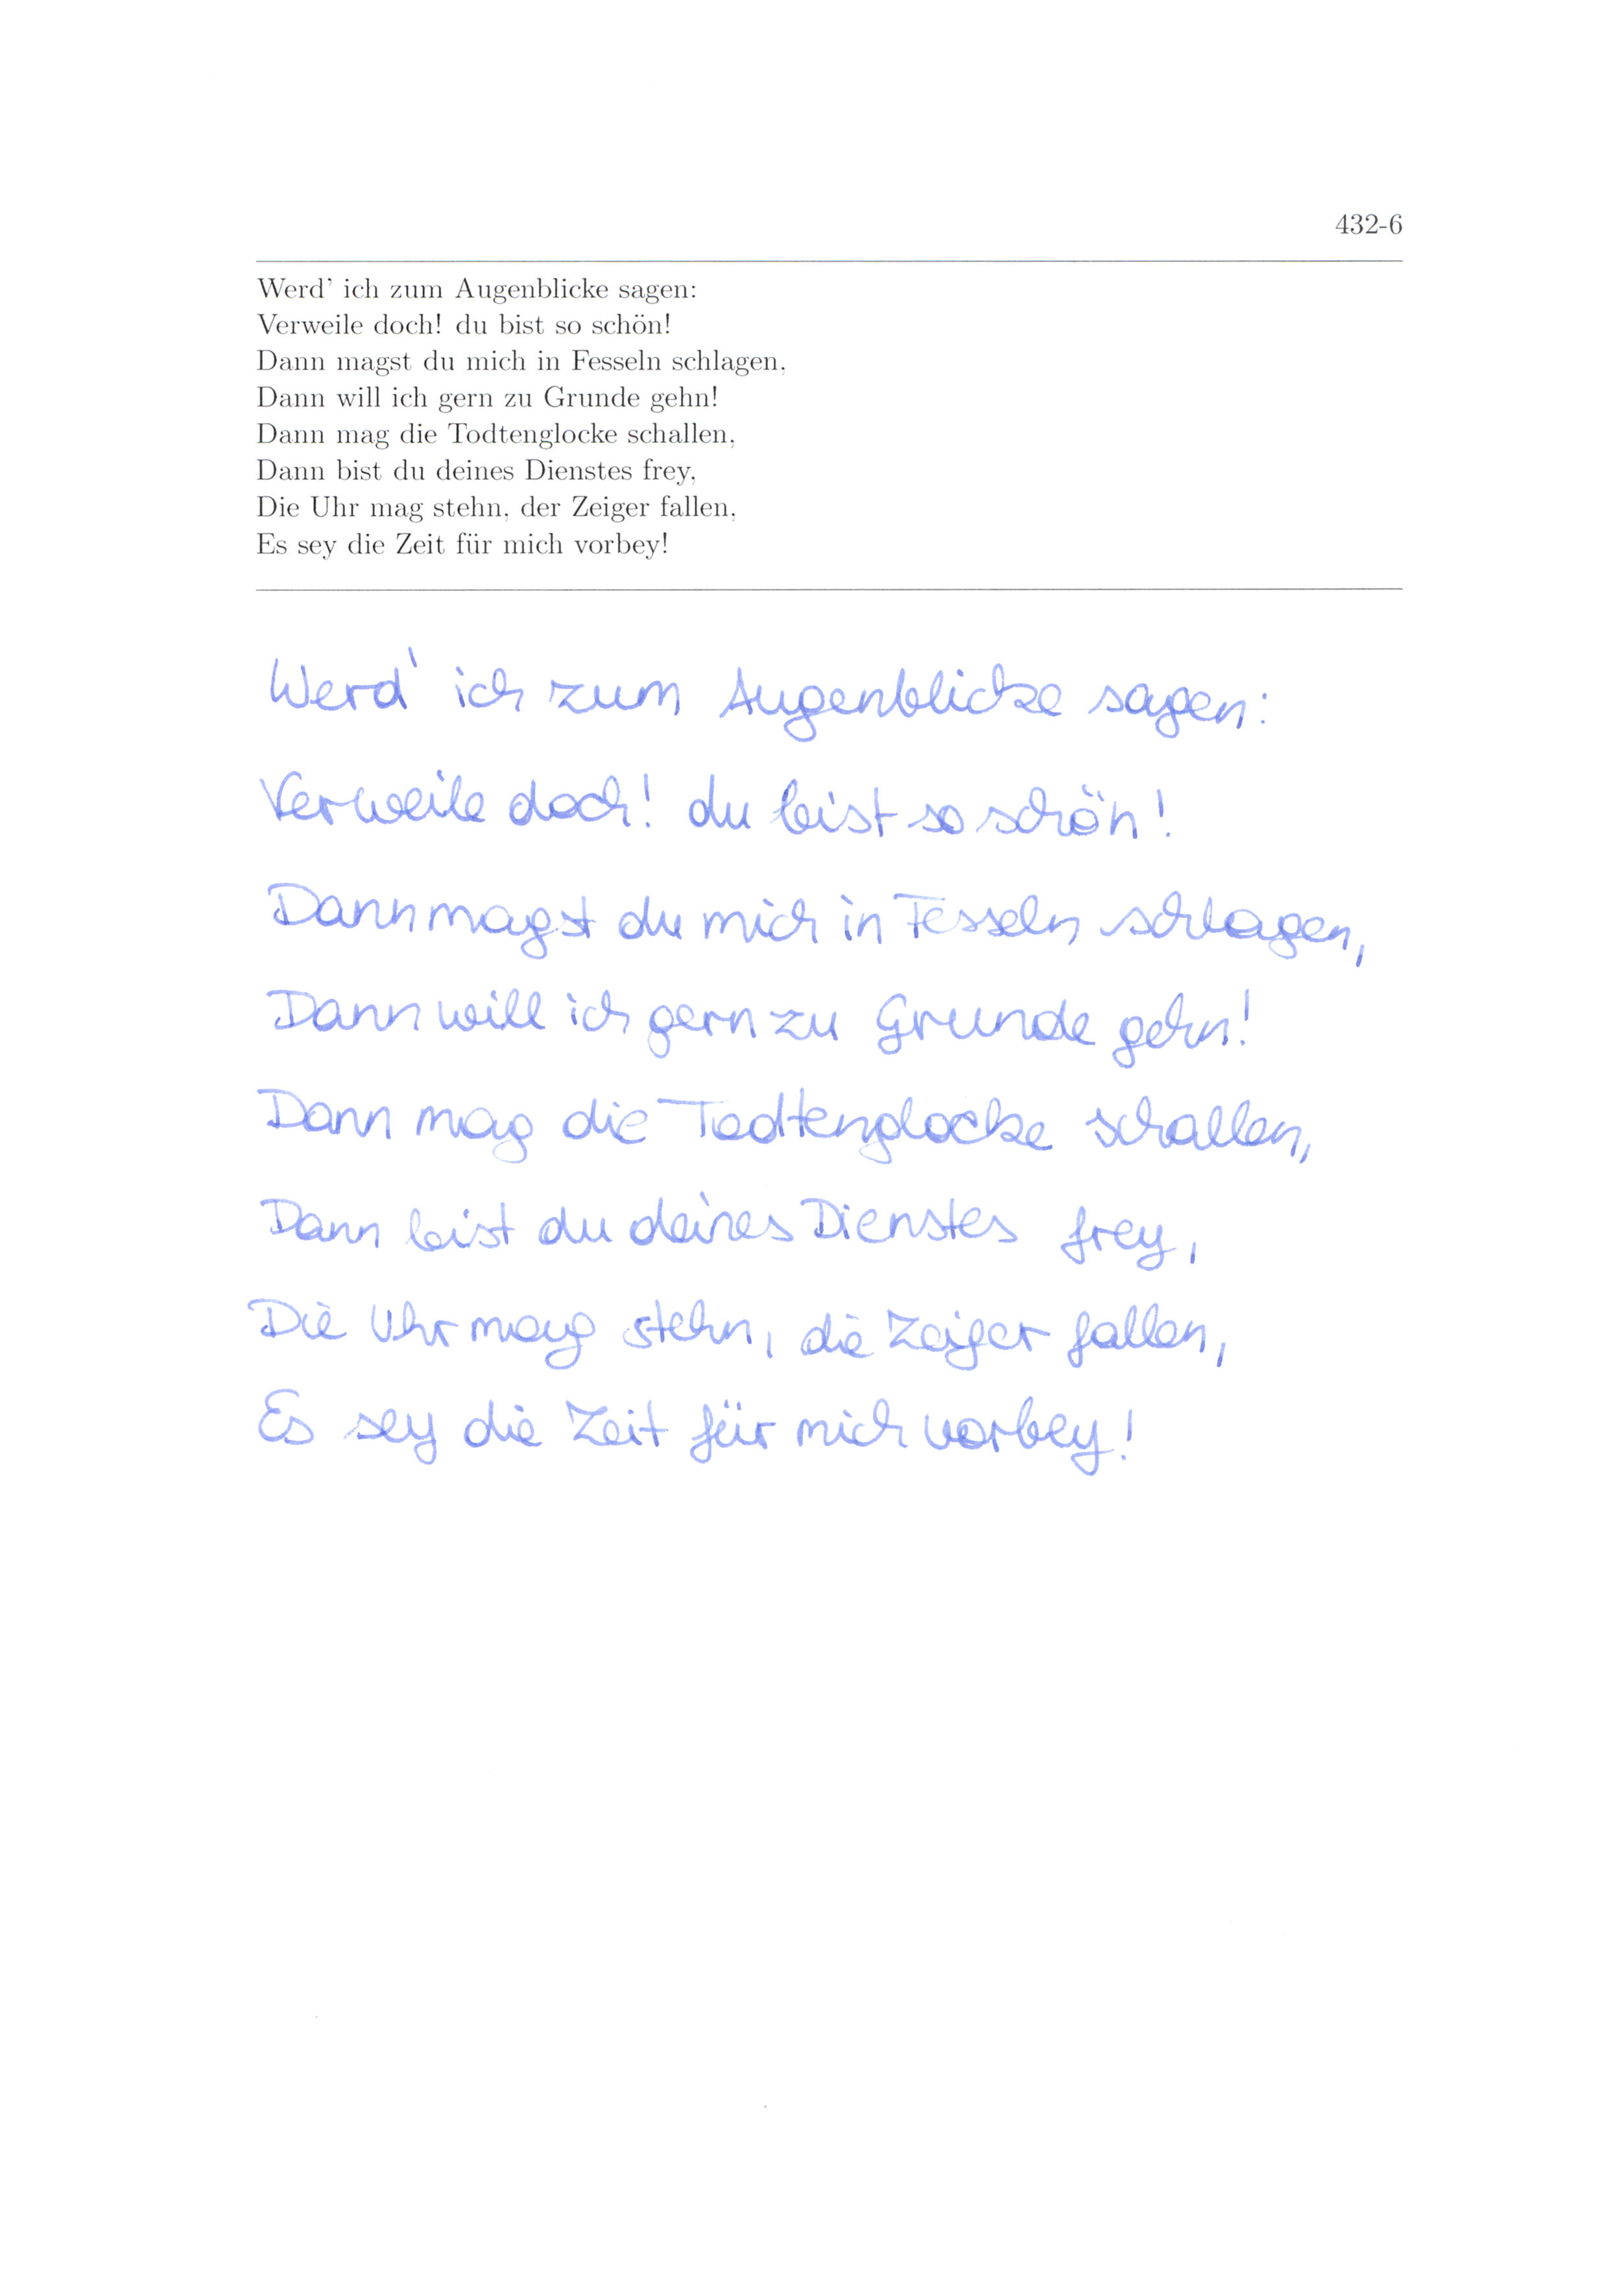 432-6
Werd' ich zum Augenblicke sagen:
Verweile doch! du bist so schön!
Dann magst du mich in Fesseln schlagen,
Dann will ich gern zu Grunde gehn!
Dann mag die Todtenglocke schallen,
Dann bist du deines Dienstes frey,
Die Uhr mag stehn, der Zeiger fallen,
Es sey die Zeit für mich vorbey!
Werd' ich zum Augenblicke sagen:
Verweile doch! du bist so schön!
Dann magst du mich in Fesseln schlagen,
Dann will ich gern zu Grunde gehn!
Dann mag die Todtenglocke schallen,
Dann bist du deines Dienstes frey,
Die Uhr mag stehn, die Zeiger fallen,
Es sey die Zeit für mich vorbey!